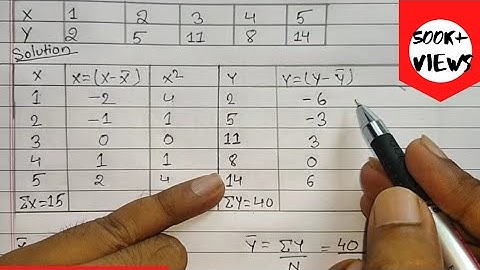 X 1 2 3 4 5
Y 2 5 11 8 14
500K+
VIEWS
Solution
X x=(X-X̄) x² Y y=(Y-Ȳ)
1 -2 4 2 -6
2 -1 1 5 -3
3 0 0 11 3
4 1 1 8 0
5 2 4 14 6
ΣX=15 ΣY=40
Ȳ = ΣY = 40
N